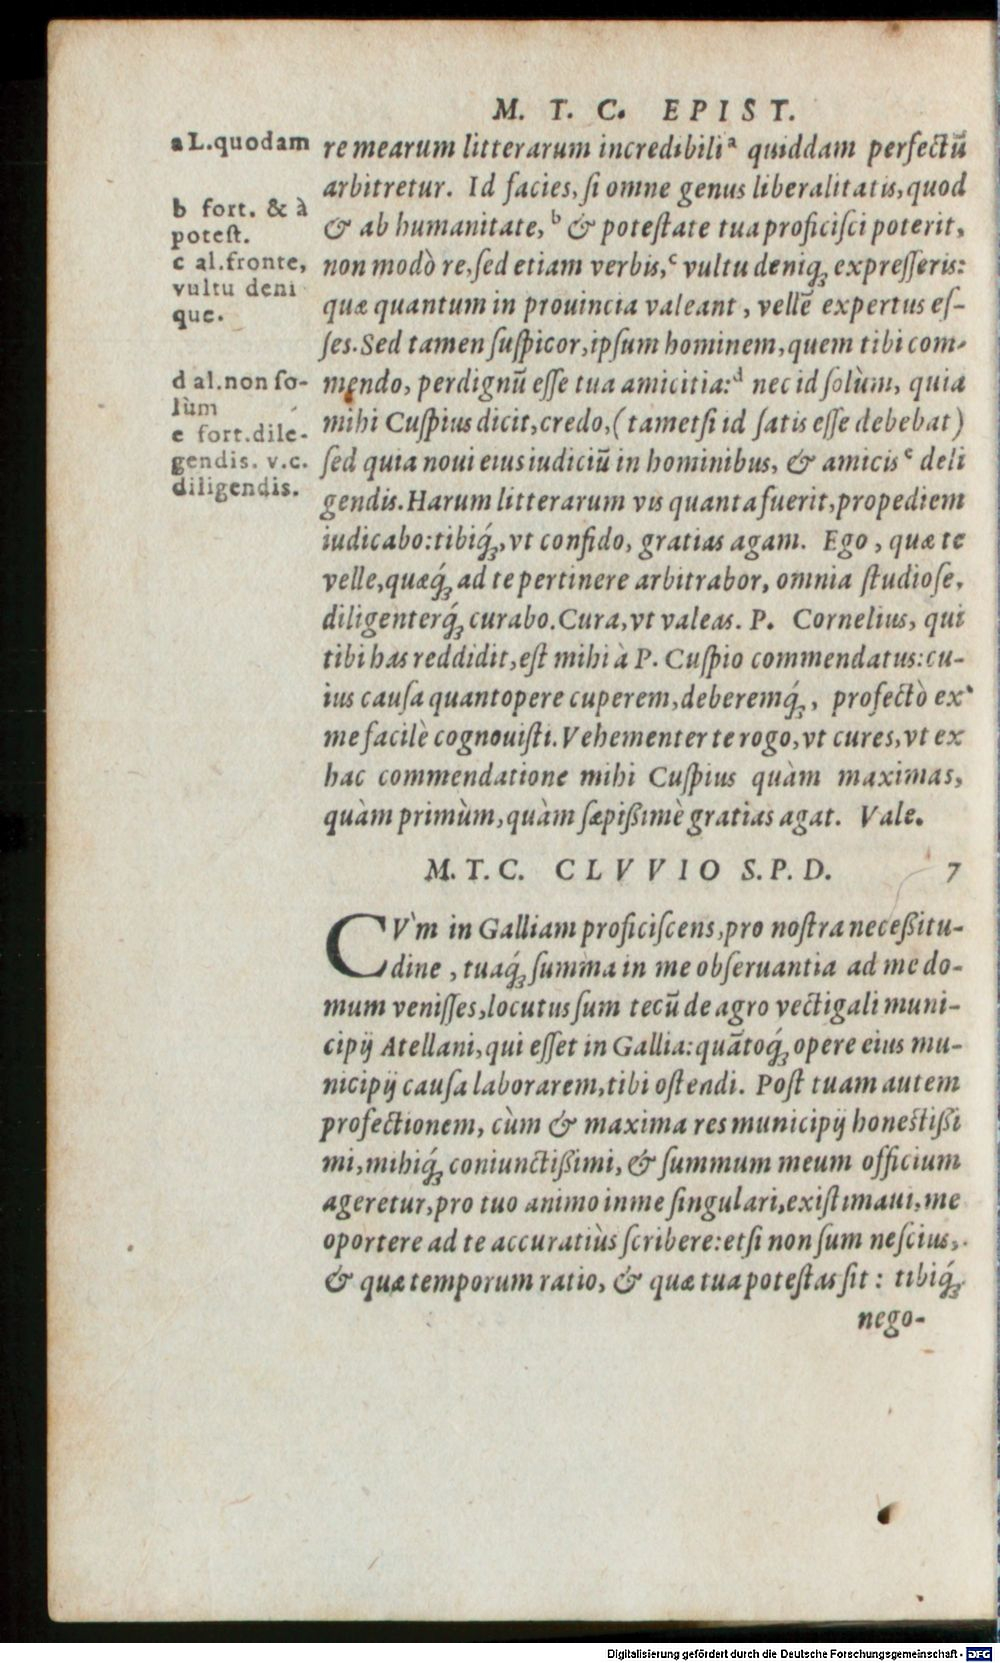 M. T. C. EPIST.
a L.quodam
b fort. & à
potest.
c al.fronte,
vultu deni
que.
d al.non so-
lùm
e fort.dile-
gendis. v.c.
diligendis.
re mearum litterarum incredibili ᵃ quiddam perfectũ
arbitretur. Id facies, si omne genus liberalitatis, quod
& ab humanitate, ᵇ & potestate tua proficisci poterit,
non modò re, sed etiam verbis, ᶜ vultu deniq́; expresseris:
quæ quantum in prouincia valeant, vellẽ expertus es-
ses. Sed tamen suspicor, ipsum hominem, quem tibi com-
mendo, perdignũ esse tua amicitia: ᵈ nec id solùm, quia
mihi Cuspius dicit, credo, (tametsi id satis esse debebat)
sed quia noui eius iudiciũ in hominibus, & amicis ᵉ deli
gendis. Harum litterarum vis quanta fuerit, propediem
iudicabo: tibiq́;, vt confido, gratias agam. Ego, quæ te
velle, quæq́; ad te pertinere arbitrabor, omnia studiose,
diligenterq́; curabo. Cura, vt valeas. P. Cornelius, qui
tibi has reddidit, est mihi à P. Cuspio commendatus: cu-
ius causa quantopere cuperem, deberemq́;, profectò ex
me facilè cognouisti. Vehementer te rogo, vt cures, vt ex
hac commendatione mihi Cuspius quàm maximas,
quàm primùm, quàm sæpißimè gratias agat. Vale.
M. T. C. CLVVIO S. P. D. 7
CV̀m in Galliam proficiscens, pro nostra neceßitu-
dine, tuaq́; summa in me obseruantia ad me do-
mum venisses, locutus sum tecũ de agro vectigali muni-
cipij Atellani, qui esset in Gallia: quãtoq́; opere eius mu-
nicipij causa laborarem, tibi ostendi. Post tuam autem
profectionem, cùm & maxima res municipij honestißi
mi, mihiq́; coniunctißimi, & summum meum officium
ageretur, pro tuo animo in me singulari, existimaui, me
oportere ad te accuratiùs scribere: etsi non sum nescius,
& quæ temporum ratio, & quæ tua potestas sit: tibiq́;
nego-
Digitalisierung gefördert durch die Deutsche Forschungsgemeinschaft - DFG